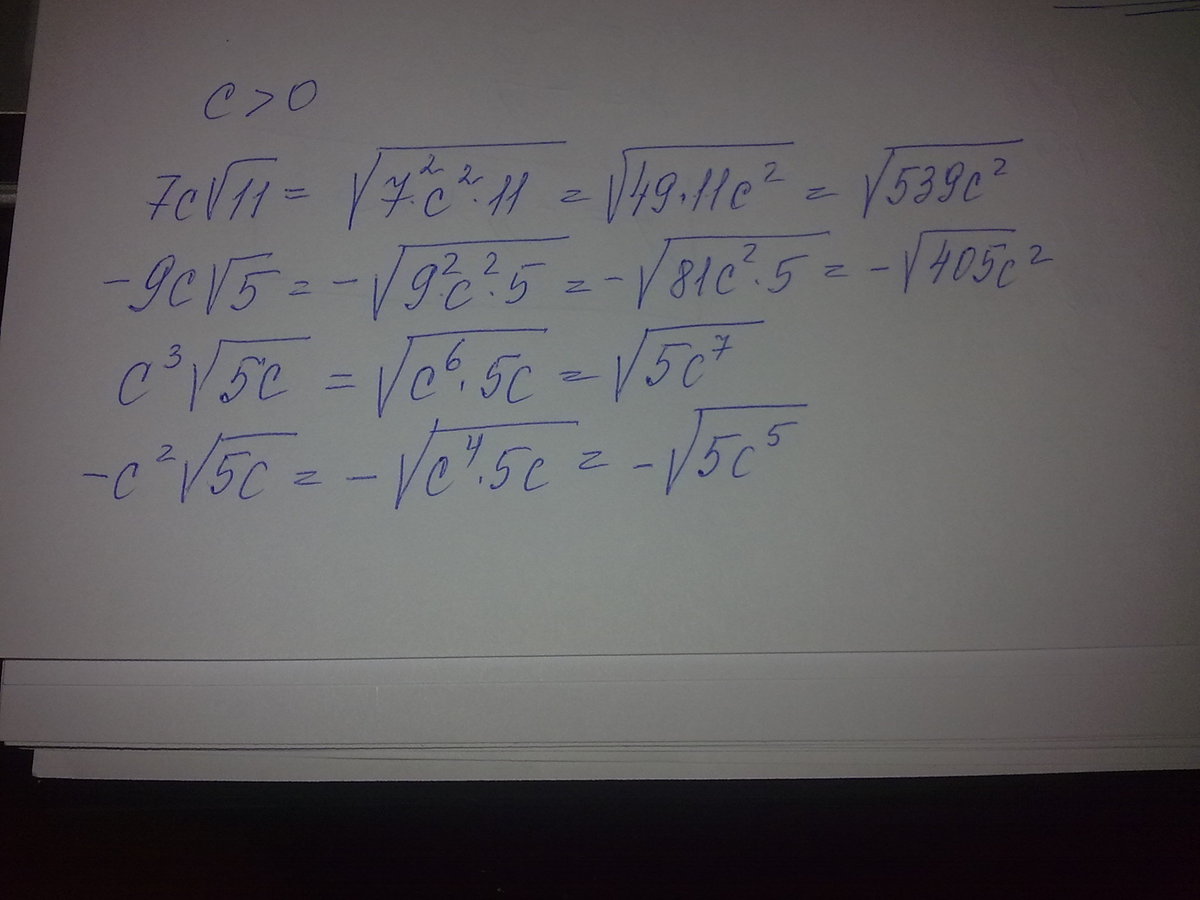 c > 0
7c√11 = √7²·c²·11 = √49·11c² = √539c²
-9c√5 = -√9²·c²·5 = -√81c²·5 = -√405c²
c³√5c = √c⁶·5c = √5c⁷
-c²√5c = -√c⁴·5c = -√5c⁵